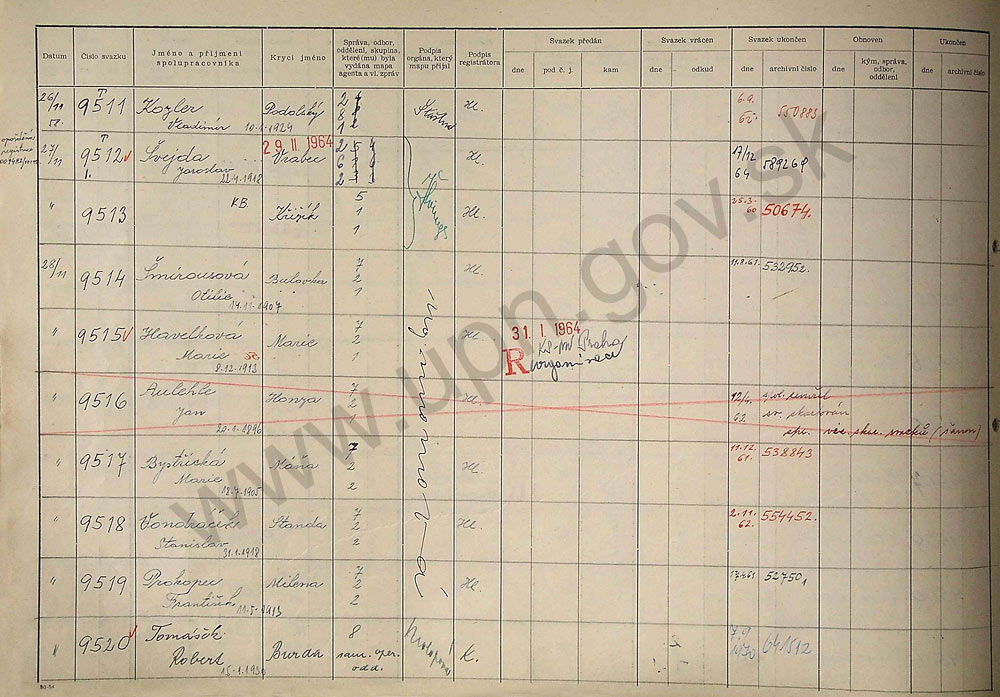 Datum
Číslo svazku
Jméno a příjmení
spolupracovníka
Krycí jméno
Správa, odbor,
oddělení, skupina,
které(mu) byla
vydána mapa
agenta a vl. zpráv
Podpis
orgána, který
mapu přijal
Podpis
registrátora
Svazek předán
dne
pod č. j.
kam
Svazek vrácen
dne
odkud
Svazek ukončen
dne
archivní číslo
Obnoven
dne
kým, správa,
odbor,
oddělení
Ukončen
dne
archivní číslo
26/11
T
9511
Kozler
Vladimír 10.1.1924
Podolský
Hl.
6.9.
62.
27/11
T
9512
1.
Švejda
Jaroslav
22.4.1918
29. II 1964
Vrabec
Hl.
17/12
64
589268
"
9513
KB.
Křižík
5
1
1
Hl.
25.3.
60
50674.
28/11
9514
Šmírousová
Otilie
14.11.1907
Bulovka
7
2
1
Hl.
532952.
"
9515
Havelková
Marie
8.12.1913
Marie
7
2
1
Hl.
31. I 1964
R
Praha
"
9516
Aulehle
Jan
20.1.1896
Honza
7
2
1
Hl.
12/4.
62
"
9517
Bystřická
Marie
18.7.1905
Máňa
7
2
2
Hl.
11.12.
61.
538843
"
9518
Vondráček
Stanislav
31.1.1918
Standa
7
2
2
Hl.
2.11.
62.
554452.
"
9519
Prokopec
František
11.5.1913
Milena
7
2
2
Hl.
52750
"
9520
Tomášek
Robert
Burda
8
sam. oper.
odd.
K.
7.9
1970
641512
www.upn.gov.sk